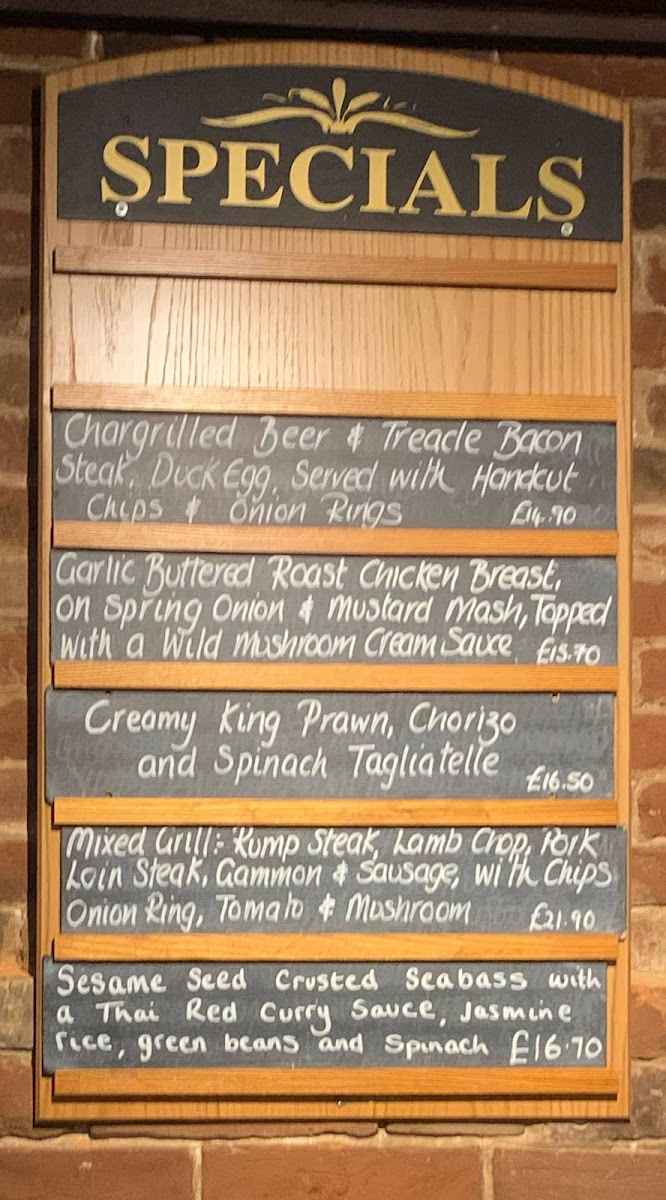 SPECIALS
Chargrilled Beer & Treacle Bacon
Steak, Duck Egg, Served with Handcut
Chips & Onion Rings £14.90
Garlic Buttered Roast Chicken Breast,
on Spring Onion & Mustard Mash, Topped
with a Wild Mushroom Cream Sauce £15.70
Creamy King Prawn, Chorizo
and Spinach Tagliatelle £16.50
Mixed Grill:- Rump Steak, Lamb Chop, Pork
Loin Steak, Gammon & Sausage, with Chips
Onion Ring, Tomato & Mushroom £21.90
Sesame Seed Crusted Seabass with
a Thai Red Curry Sauce, Jasmine
rice, green beans and Spinach £16.70